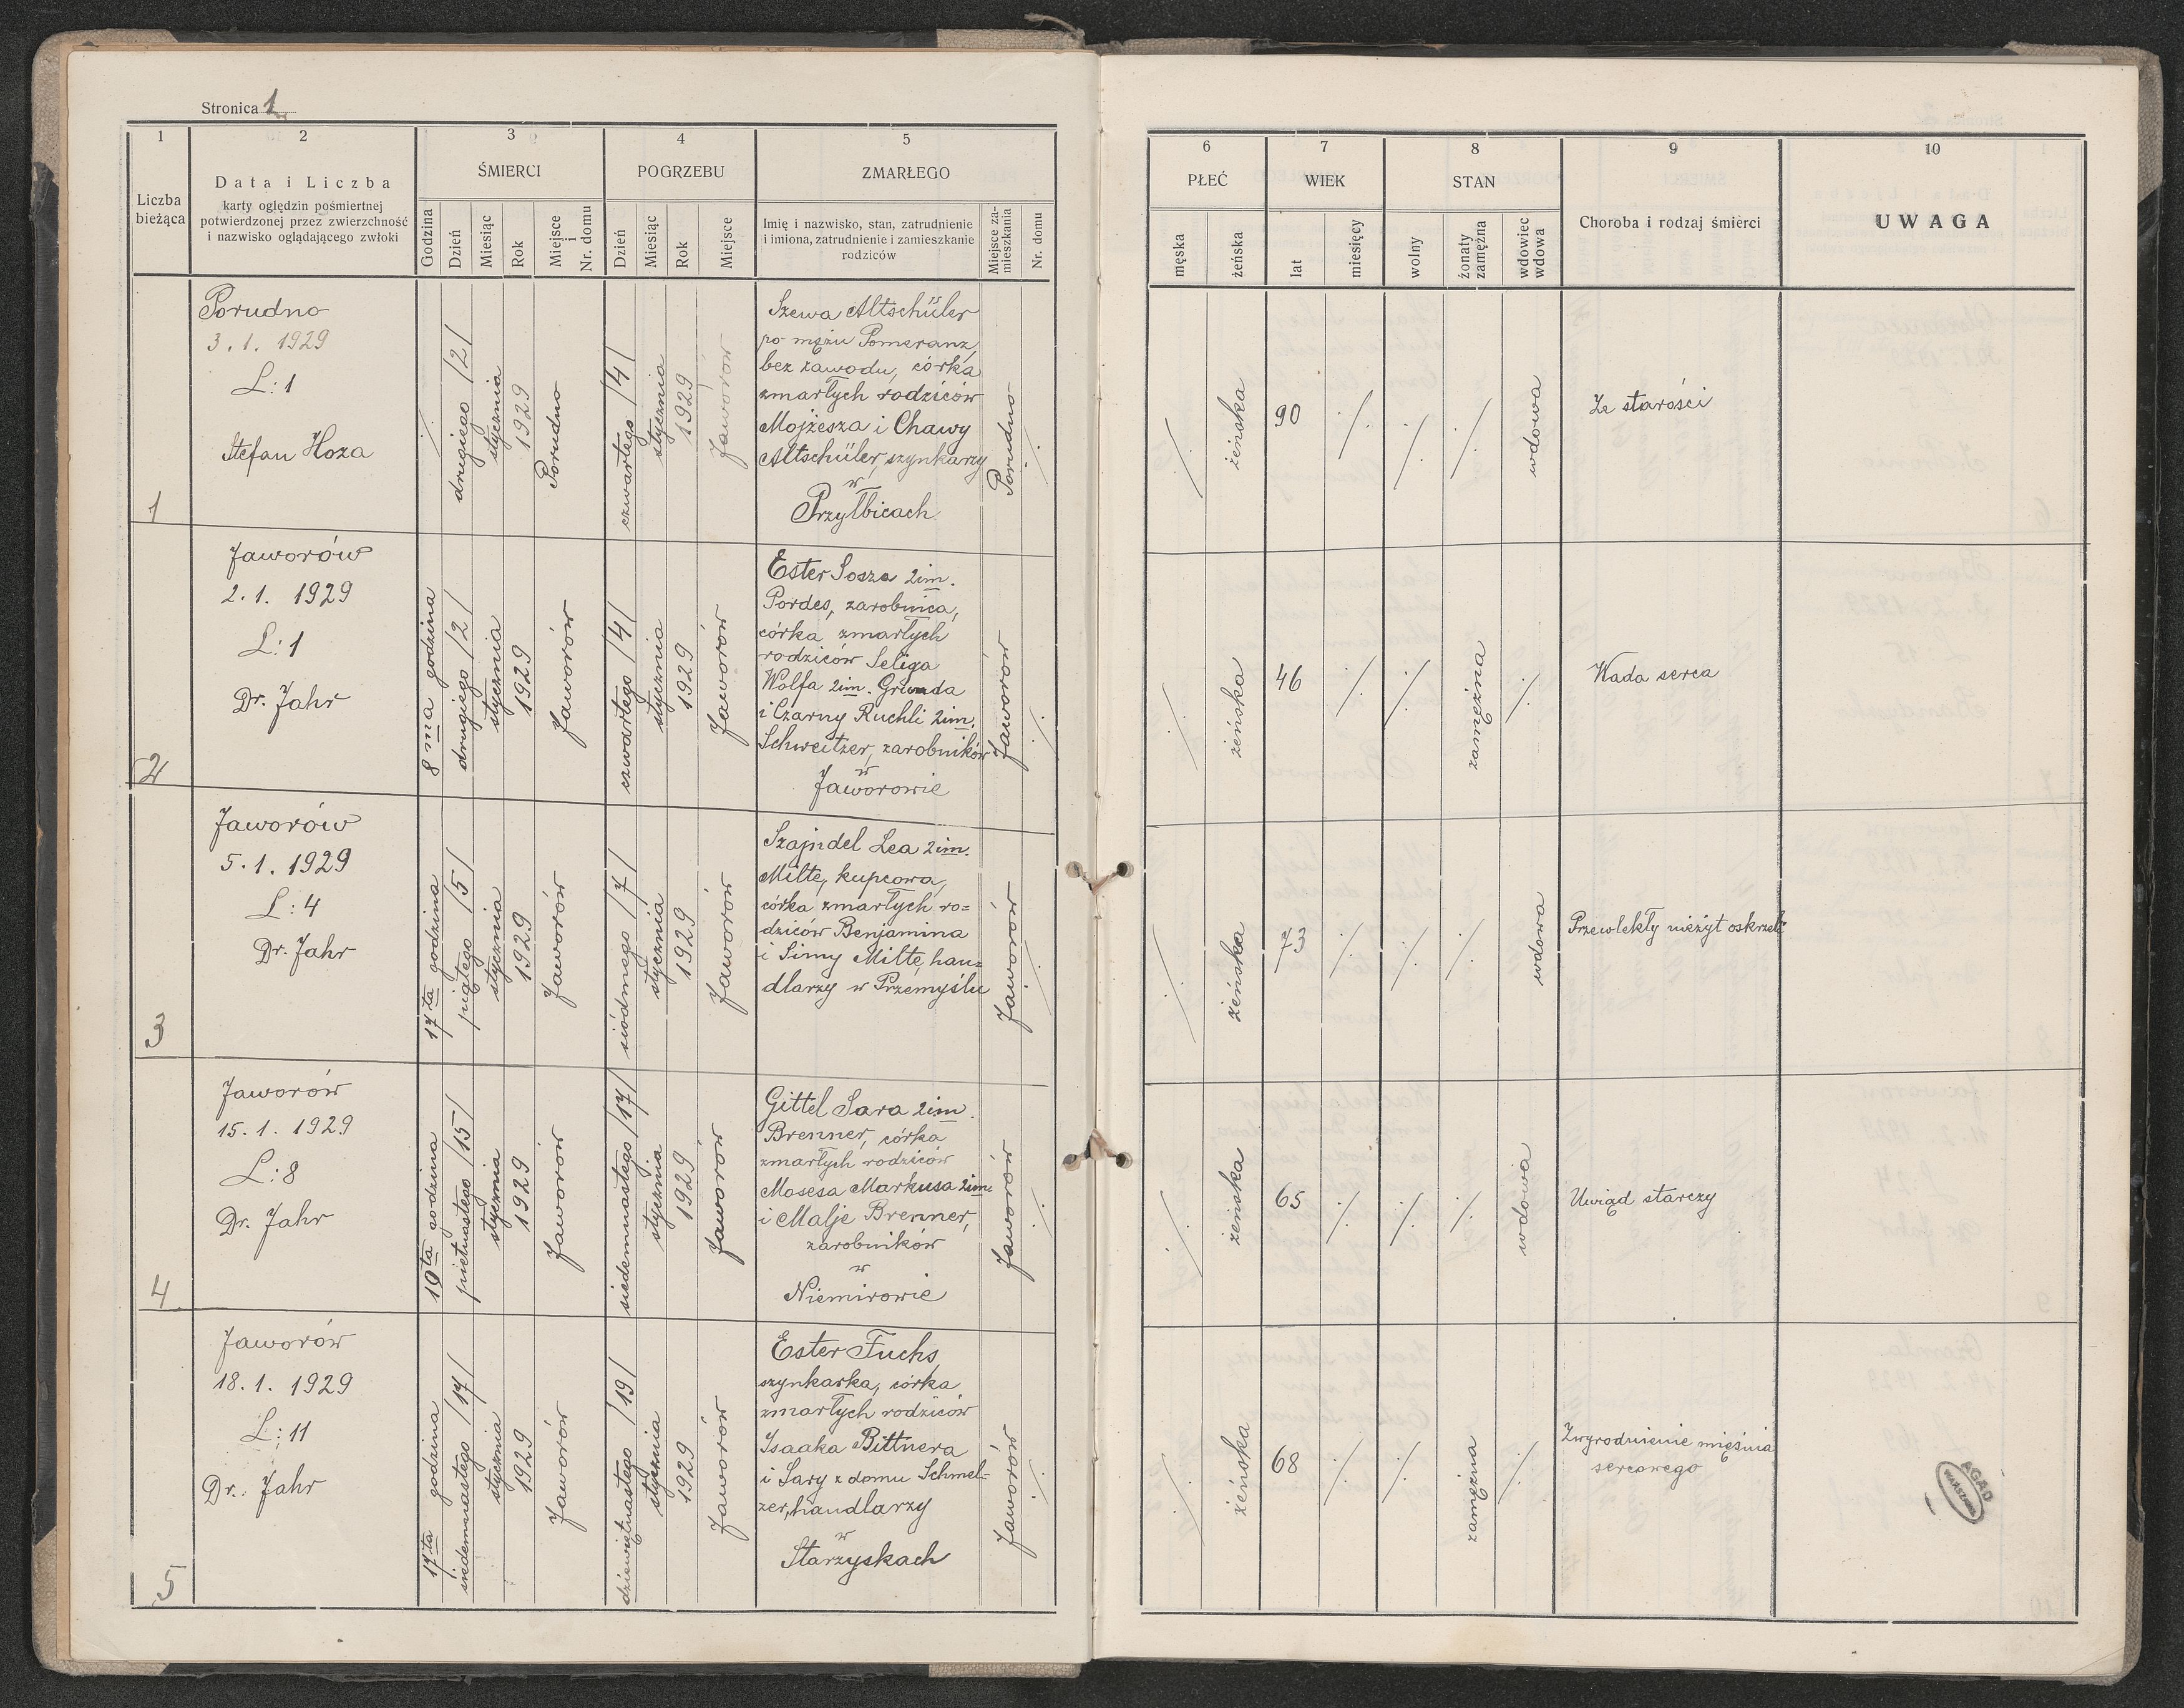 Stronica 1
1
2
3
4
5
Liczba
bieżąca
Data i Liczba
karty oględzin pośmiertnej
potwierdzonej przez zwierzchność
i nazwisko oglądającego zwłoki
ŚMIERCI
Godzina
Dzień
Miesiąc
Rok
Miejsce
i
Nr. domu
POGRZEBU
Dzień
Miesiąc
Rok
Miejsce
ZMARŁEGO
Imię i nazwisko, stan, zatrudnienie
i imiona, zatrudnienie i zamieszkanie
rodziców
Miejsce za-
mieszkania
Nr. domu
6
7
8
9
10
PŁEĆ
męska
żeńska
WIEK
lat
miesięcy
STAN
wolny
żonaty
zamężna
wdowiec
wdowa
Choroba i rodzaj śmierci
UWAGA
1
Porudno
3. 1. 1929
L: 1
Stefan Hoza
./.
drugiego /2/
stycznia
1929
Porudno
czwartego /4/
stycznia
1929
Jaworów
Szewa Altschüler
po mężu Pomeranz,
bez zawodu, córka
zmarłych rodziców
Mojżesza i Chawy
Altschüler, szynkarzy
w
Przyłbicach
Porudno
./.
./.
żeńska
90
./.
./.
./.
wdowa
Ze starości
2
Jaworów
2. 1. 1929
L: 1
Dr. Jahr
8 ma godzina
drugiego /2/
stycznia
1929
Jaworów
czwartego /4/
stycznia
1929
Jaworów
Ester Sosza 2im.
Pordes, zarobnica,
córka zmarłych
rodziców Seliga
Wolfa 2im. Grunda
i Czarny Ruchli 2im.
Schweitzer, zarobników
w
Jaworowie
Jaworów
./.
./.
żeńska
46
./.
./.
zamężna
./.
Wada serca
3
Jaworów
5. 1. 1929
L: 4
Dr. Jahr
17 ta godzina
piątego /5/
stycznia
1929
Jaworów
siódmego /7/
stycznia
1929
Jaworów
Szajndel Lea 2im.
Milte, kupcowa,
córka zmarłych ro=
dziców Benjamina
i Simy Milte, han=
dlarzy w Przemyślu
Jaworów
./.
./.
żeńska
73
./.
./.
./.
wdowa
Przewlekły nieżyt oskrzeli
4
Jaworów
15. 1. 1929
L: 8
Dr. Jahr
10 ta godzina
pietnastego /15/
stycznia
1929
Jaworów
siedemnastego /17/
stycznia
1929
Jaworów
Gittel Sara 2im.
Brenner, córka
zmarłych rodziców
Mosesa Markusa 2im.
i Malje Brenner,
zarobników
w
Niemirowie
Jaworów
./.
./.
żeńska
65
./.
./.
./.
wdowa
Uwiąd starczy
5
Jaworów
18. 1. 1929
L: 11
Dr. Jahr
17 ta godzina
siedemnastego /17/
stycznia
1929
Jaworów
dziewiętnastego /19/
stycznia
1929
Jaworów
Ester Fuchs,
szynkarka, córka
zmarłych rodziców
Isaaka Bittnera
i Sary z domu Schmel=
zer, handlarzy
w
Starzyskach
Jaworów
./.
./.
żeńska
68
./.
./.
zamężna
./.
Zwyrodnienie mięśnia
sercowego
AGAD
WARSZAWA